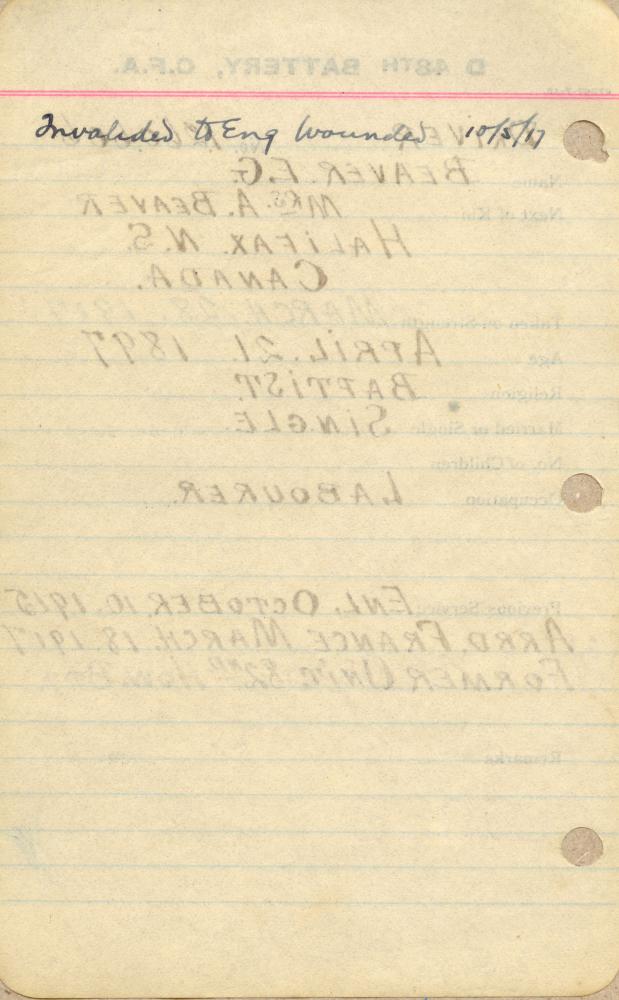 Invalided to Eng Wounded 10/5/17
D 48TH BATTERY, C.F.A.
Name BEAVER. F.G.
Next of Kin MRS. A. BEAVER
HALIFAX. N.S.
CANADA.
Taken on Strength MARCH. 28. 1917
Age APRIL. 21. 1897
Religion BAPTIST.
Married or Single SINGLE.
No. of Children
Occupation LABOURER.
Previous Service ENL. OCTOBER. 10. 1915
ARRD. FRANCE MARCH. 18. 1917
FORMER UNIT. 82ND How. Bty.
Remarks